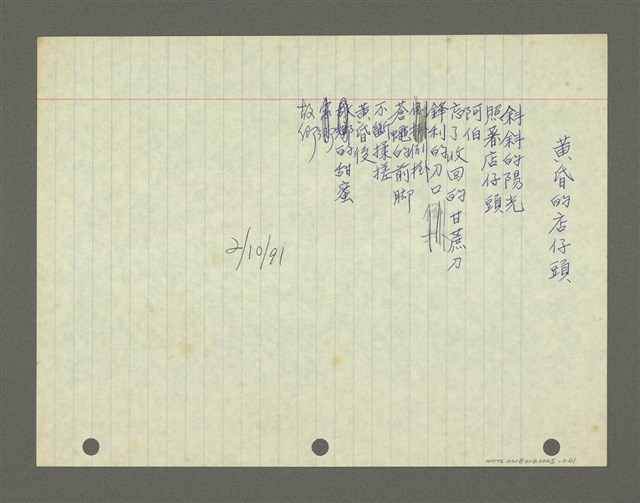 黃昏的店仔頭
斜斜的陽光
照著店仔頭
阿伯
忘了收回的甘蔗刀
鋒利的刀口
倒掛
蒼蠅的前脚
不斷揉搓
黃昏後
的甜蜜
故鄉
2/10/91